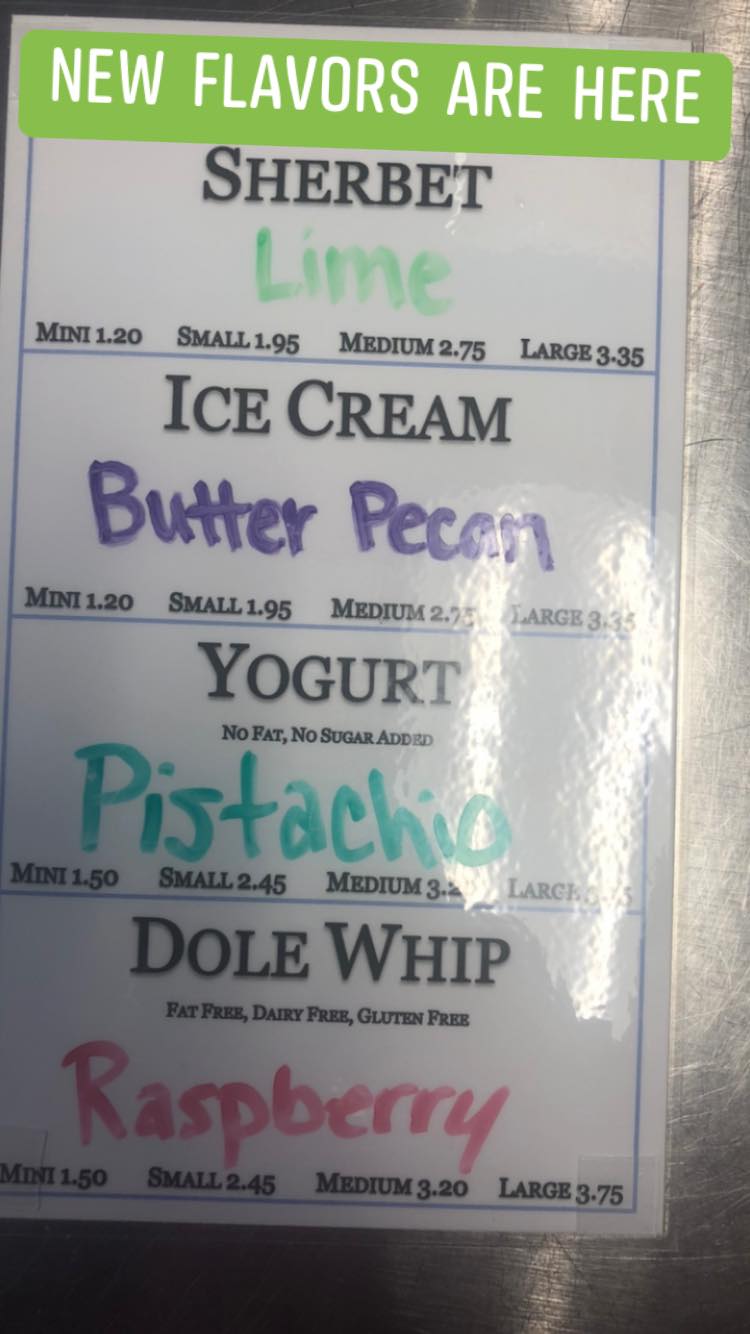 NEW FLAVORS ARE HERE
SHERBET
Lime
MINI 1.20 SMALL 1.95 MEDIUM 2.75 LARGE 3.35
ICE CREAM
Butter Pecan
MINI 1.20 SMALL 1.95 MEDIUM 2.75 LARGE 3.35
YOGURT
NO FAT, NO SUGAR ADDED
Pistachio
MINI 1.50 SMALL 2.45 MEDIUM LARGE
DOLE WHIP
FAT FREE, DAIRY FREE, GLUTEN FREE
Raspberry
MINI 1.50 SMALL 2.45 MEDIUM 3.20 LARGE 3.75